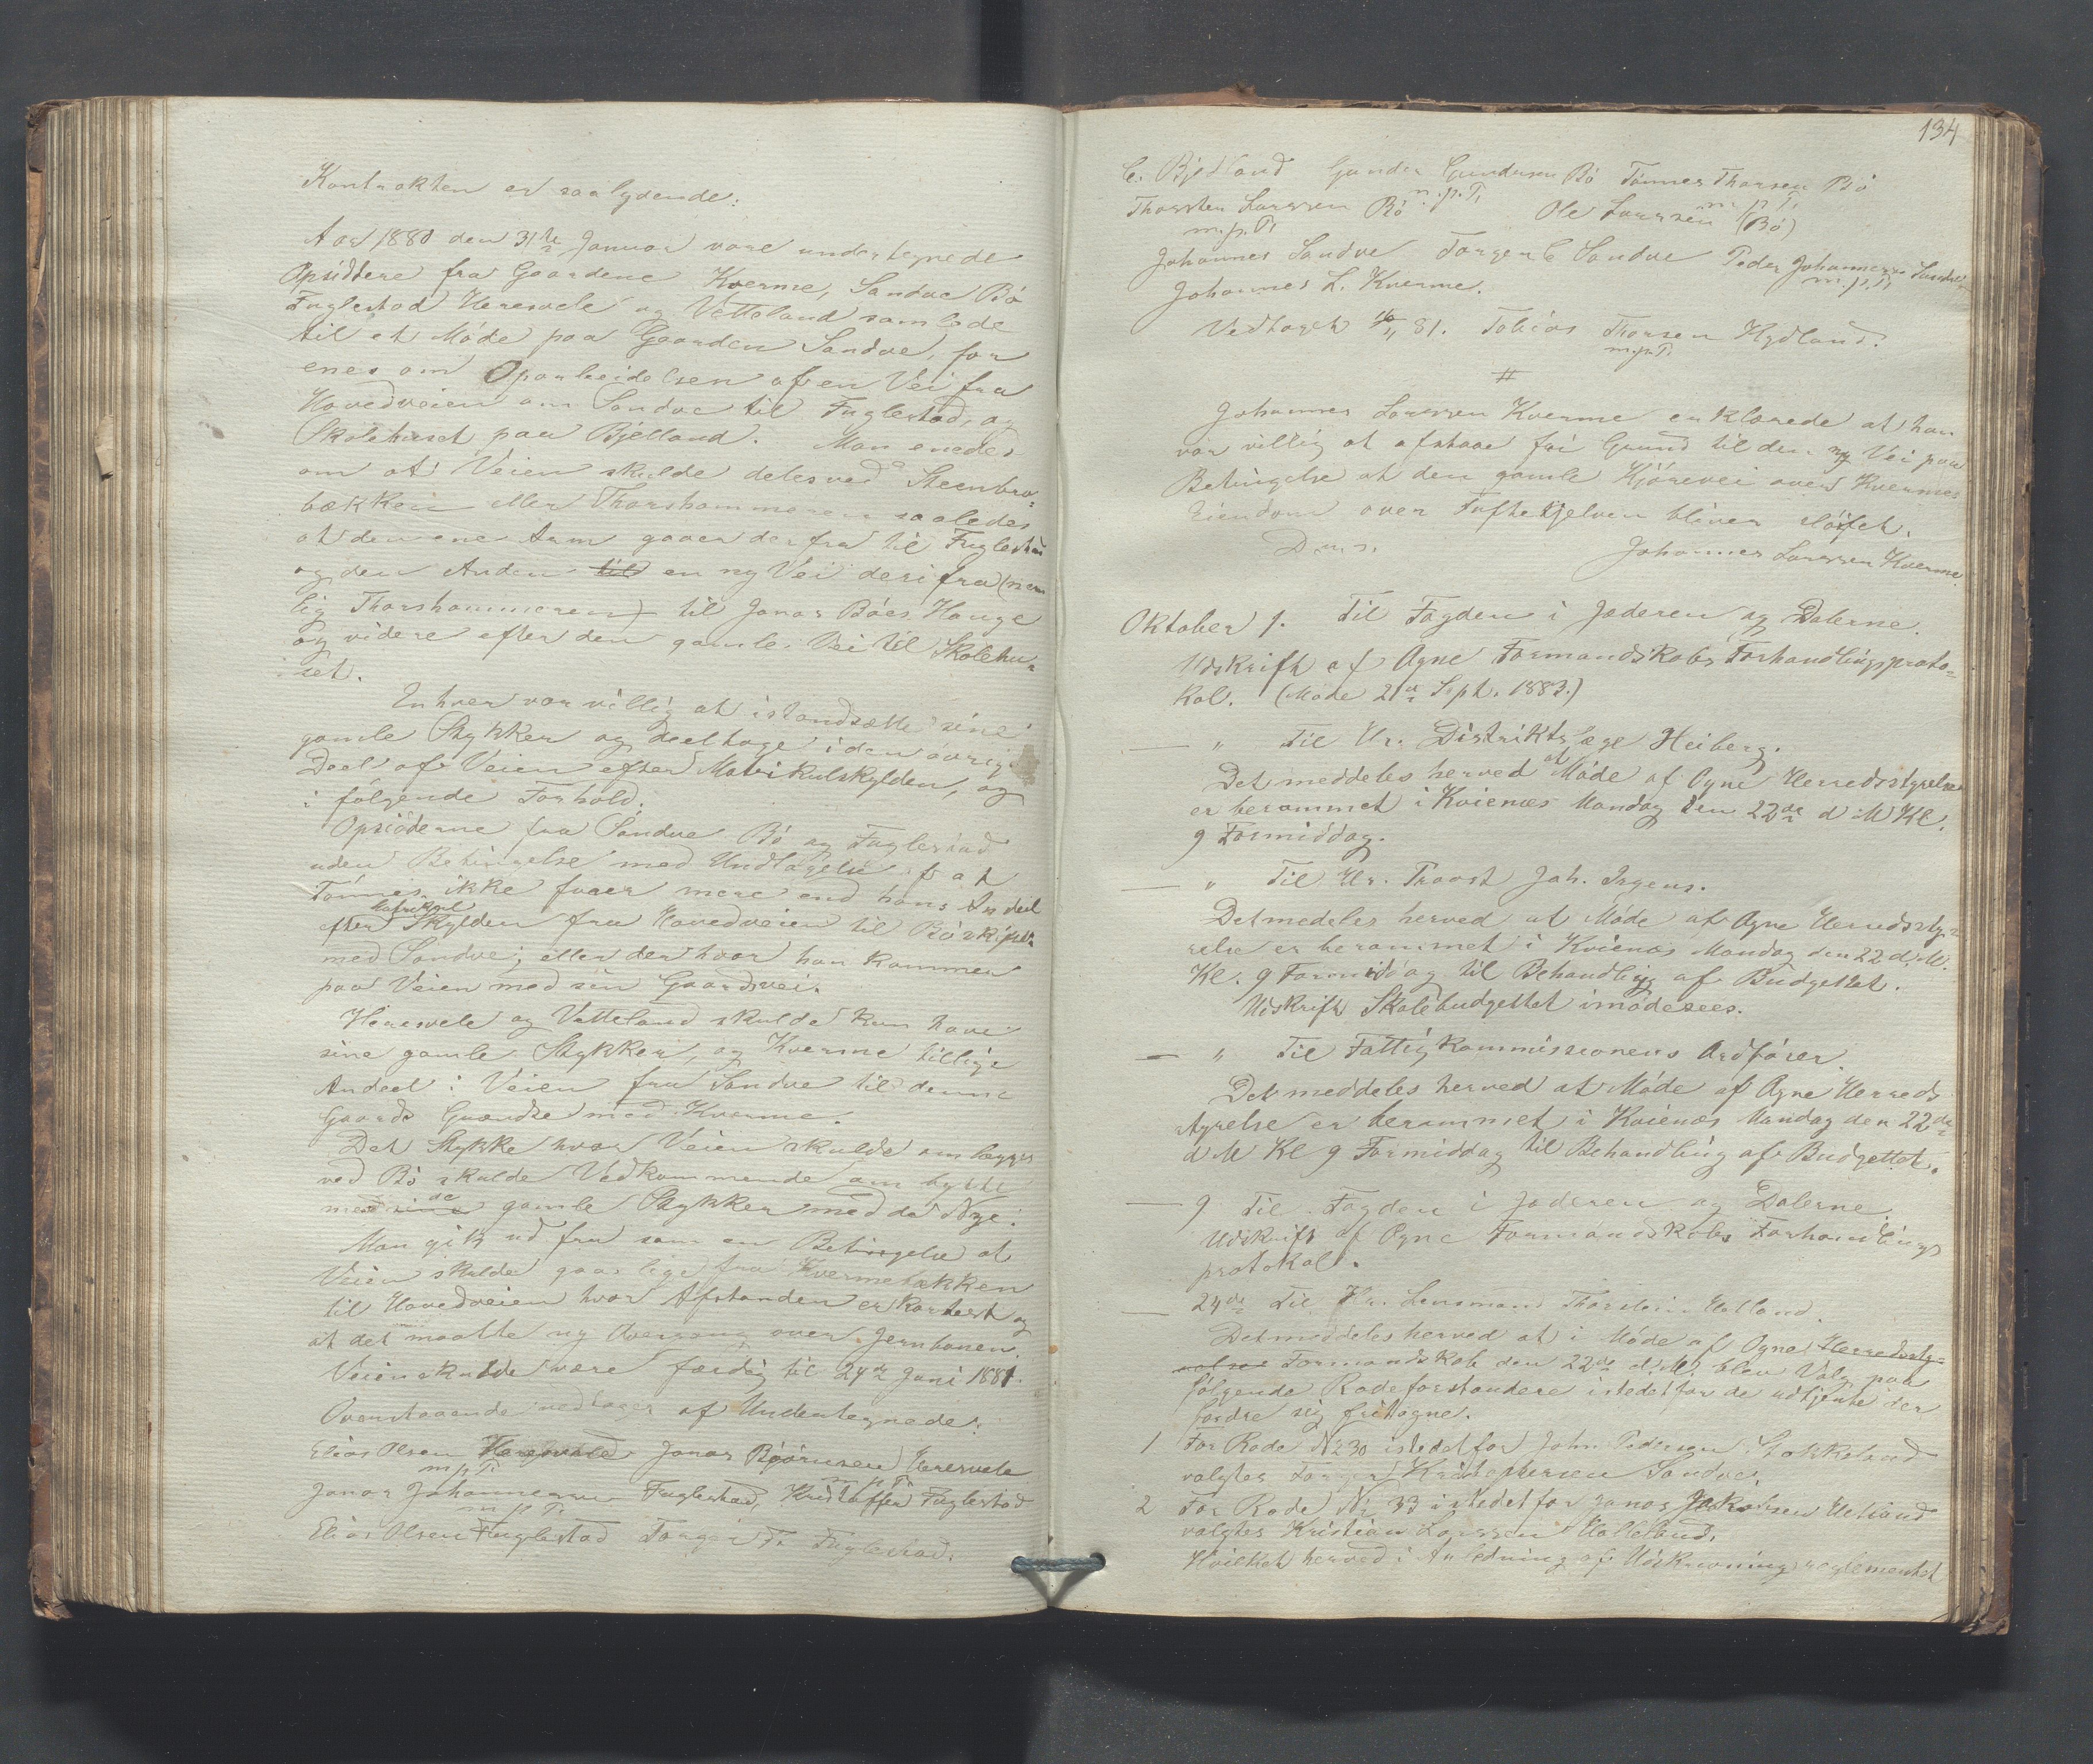 Kontrakten er saalydende:
Aar 1881 den 31te Januar vare undertegnede
Opsiddere fra Gaardene Kverme, Sandve Bö
Fuglestad Heresvele og Vetteland samlede
til et Möde paa Gaarden Sandve, for
enes om Oparbeidelsen af en Vei fra
Hovedveien om Sandve til Fuglestad, og
Skolehuset paa Bjelland. Man enedes
om at Veien skulde deles ved Steenbro-
bækken eller Thorshammeren saaledes
at den ene Arm gaaer derfra til Fuglestad
og den Anden til en ny Vei derifra (nem
lig Thorshammeren) til Jonas Böes Hauge
og videre efter den gamle Vei til Skolehu-
set.
Enhver var villig at istandsætte sine
gamle Stykker og deeltage i den övrige
Deel af Veien efter Matrikulskylden, og
i fölgende Forhold.
Opsidderne fra Sandve Bö og Fuglestad
uden Betingelse med Undtagelse af at
Tönnes ikke faaer mere end hans Andeel
efter Matrikul Skylden fra Hovedveien til Bö skifter
med Sandve; eller der hvor han kommer
paa Veien med sin Gaardsvei.
Heresvele og Vatteland skulde kun have
sine gamle Stykker, og Kverme tillige
Andeel i Veien fra Sandve til denne
Gaards Grændse med Kverme.
Det Stykke hvor Veien skulde omlægges
ved Bö skulde Vedkommende ombytte
med sine de gamle Stykker med de Nye.
Man gik ud fra som en Betingelse at
Veien skulde gaa lige fra Kvermebækken
til Hovedveien hvor Afstanden er kortest og
at det maatte ny Overgang over Jernbanen.
Veien skulde være færdig til 24de Juni 1881.
Ovenstaaende vedtages af Undertegnede:
Elias Olsen Heresvele Jonas Björnsen Heresvele
m p T.
Jonas Johannessen Fuglestad, Kristoffer Fuglestad
m p T. m p T.
Elias Olsen Fuglestad Torger T. Fuglestad.
134
C. Bjelland Gunder Gundersen Bö Tönnes Thorsen Bö
Thorsten Larssen Bö m.p.T. Ole Larssen (Bö) m p T.
m.p.T.
Johannes Sandve Torger C Sandve Peder Johannessen Sandve
m.p.T.
Johannes L. Kverme.
Vedtaget 16/11 81. Tobias Thorsen Hydland.
m.p.T.
#
Johannes Larssen Kverme erklærede at han
var villig at afstaae fri Grund til den ny Vei paa
Betingelse at den gamle Kjörevei over Kvermes
Eiendom over Tuftekjelven bliver slöifet.
D.u.s. Johannes Larssen Kverme.
Oktober 1. Til Fogden i Jæderen og Dalerne.
Udskrift af Ogne Formandskabs Forhandlingsproto-
kol. (Möde 21de Sept. 1883.)
— " Til Hr. Distriktslæge Heiberg.
Det meddeles herved at Möde af Ogne Herredsstyrelse
er berammet i Kvienæs Mandag den 22de d M Kl.
9 Formiddag.
— " Til Hr. Provst Joh. Irgens.
Det medeles herved at Möde af Ogne Herredssty-
relse er berammet i Kvienæs Mandag den 22 d. M.
Kl. 9 Formiddag til Behandling af Budgettet.
Udskrift Skolebudgettet imödesees.
— " Til Fattigkommissionens Ordförer.
Det meddeles herved at Möde af Ogne Herreds
styrelse er berammet i Kvienæs Mandag den 22de
d M Kl 9 Formiddag til Behandling af Budgettet.
— 9 Til Fogden i Jæderen og Dalerne.
Udskrift af Ogne Formandskabs Forhandlings
protokol.
— 24de Til Hr. Lensmand Thorstein Hatland.
Det meddeles herved at i Möde af Ogne Herredssty-
relse Formandskab den 22de d.M. blev Valg paa
fölgende Rodeforstandere istedetfor de udtjente der
fordre sig fritagne.
1 For Rode No 30 istedetfor John Pedersen Stokkeland
valgtes Torger Kristophersen Sandve.
2 For Rode No 33 istedetfor Jonas Jakobsen Ueland
valgtes Kristian Larssen Hälleland.
Hvilket herved i Anledning af Udskrivning reglementet